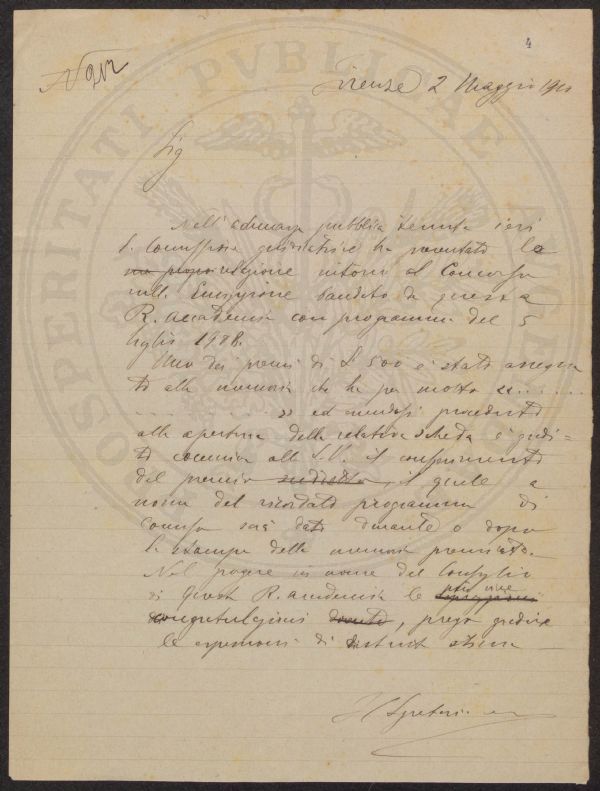 4
Firenze 2 Maggio
Sig
Nell'adunanza pubblica tenuta ieri
la Commissione ha presentato la
relazione intorno al Concorso
bandito da questa
R. Accademia con programma del 5
luglio
Uno dei premi di £ 500 è stato assegna
to alla memoria che ha per motto "......
.............." ed procedut
alla apertura della relativa scheda
alla S.V. il conferimento
del premio il quale a
norma del ricordato programma di
Concorso sarà dato durante o dopo
la stampa della memoria premiata.
Nel porgere in nome del Consiglio
di questa R. Accademia le più vive
congratulazioni, prego gradire
le espressioni di distinta stima
Il Segretario
PROSPERITATI PVBLICAE AVGENDAE